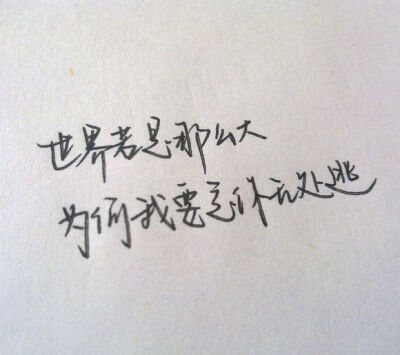 世界若是那么大
为何我要忘你无处逃